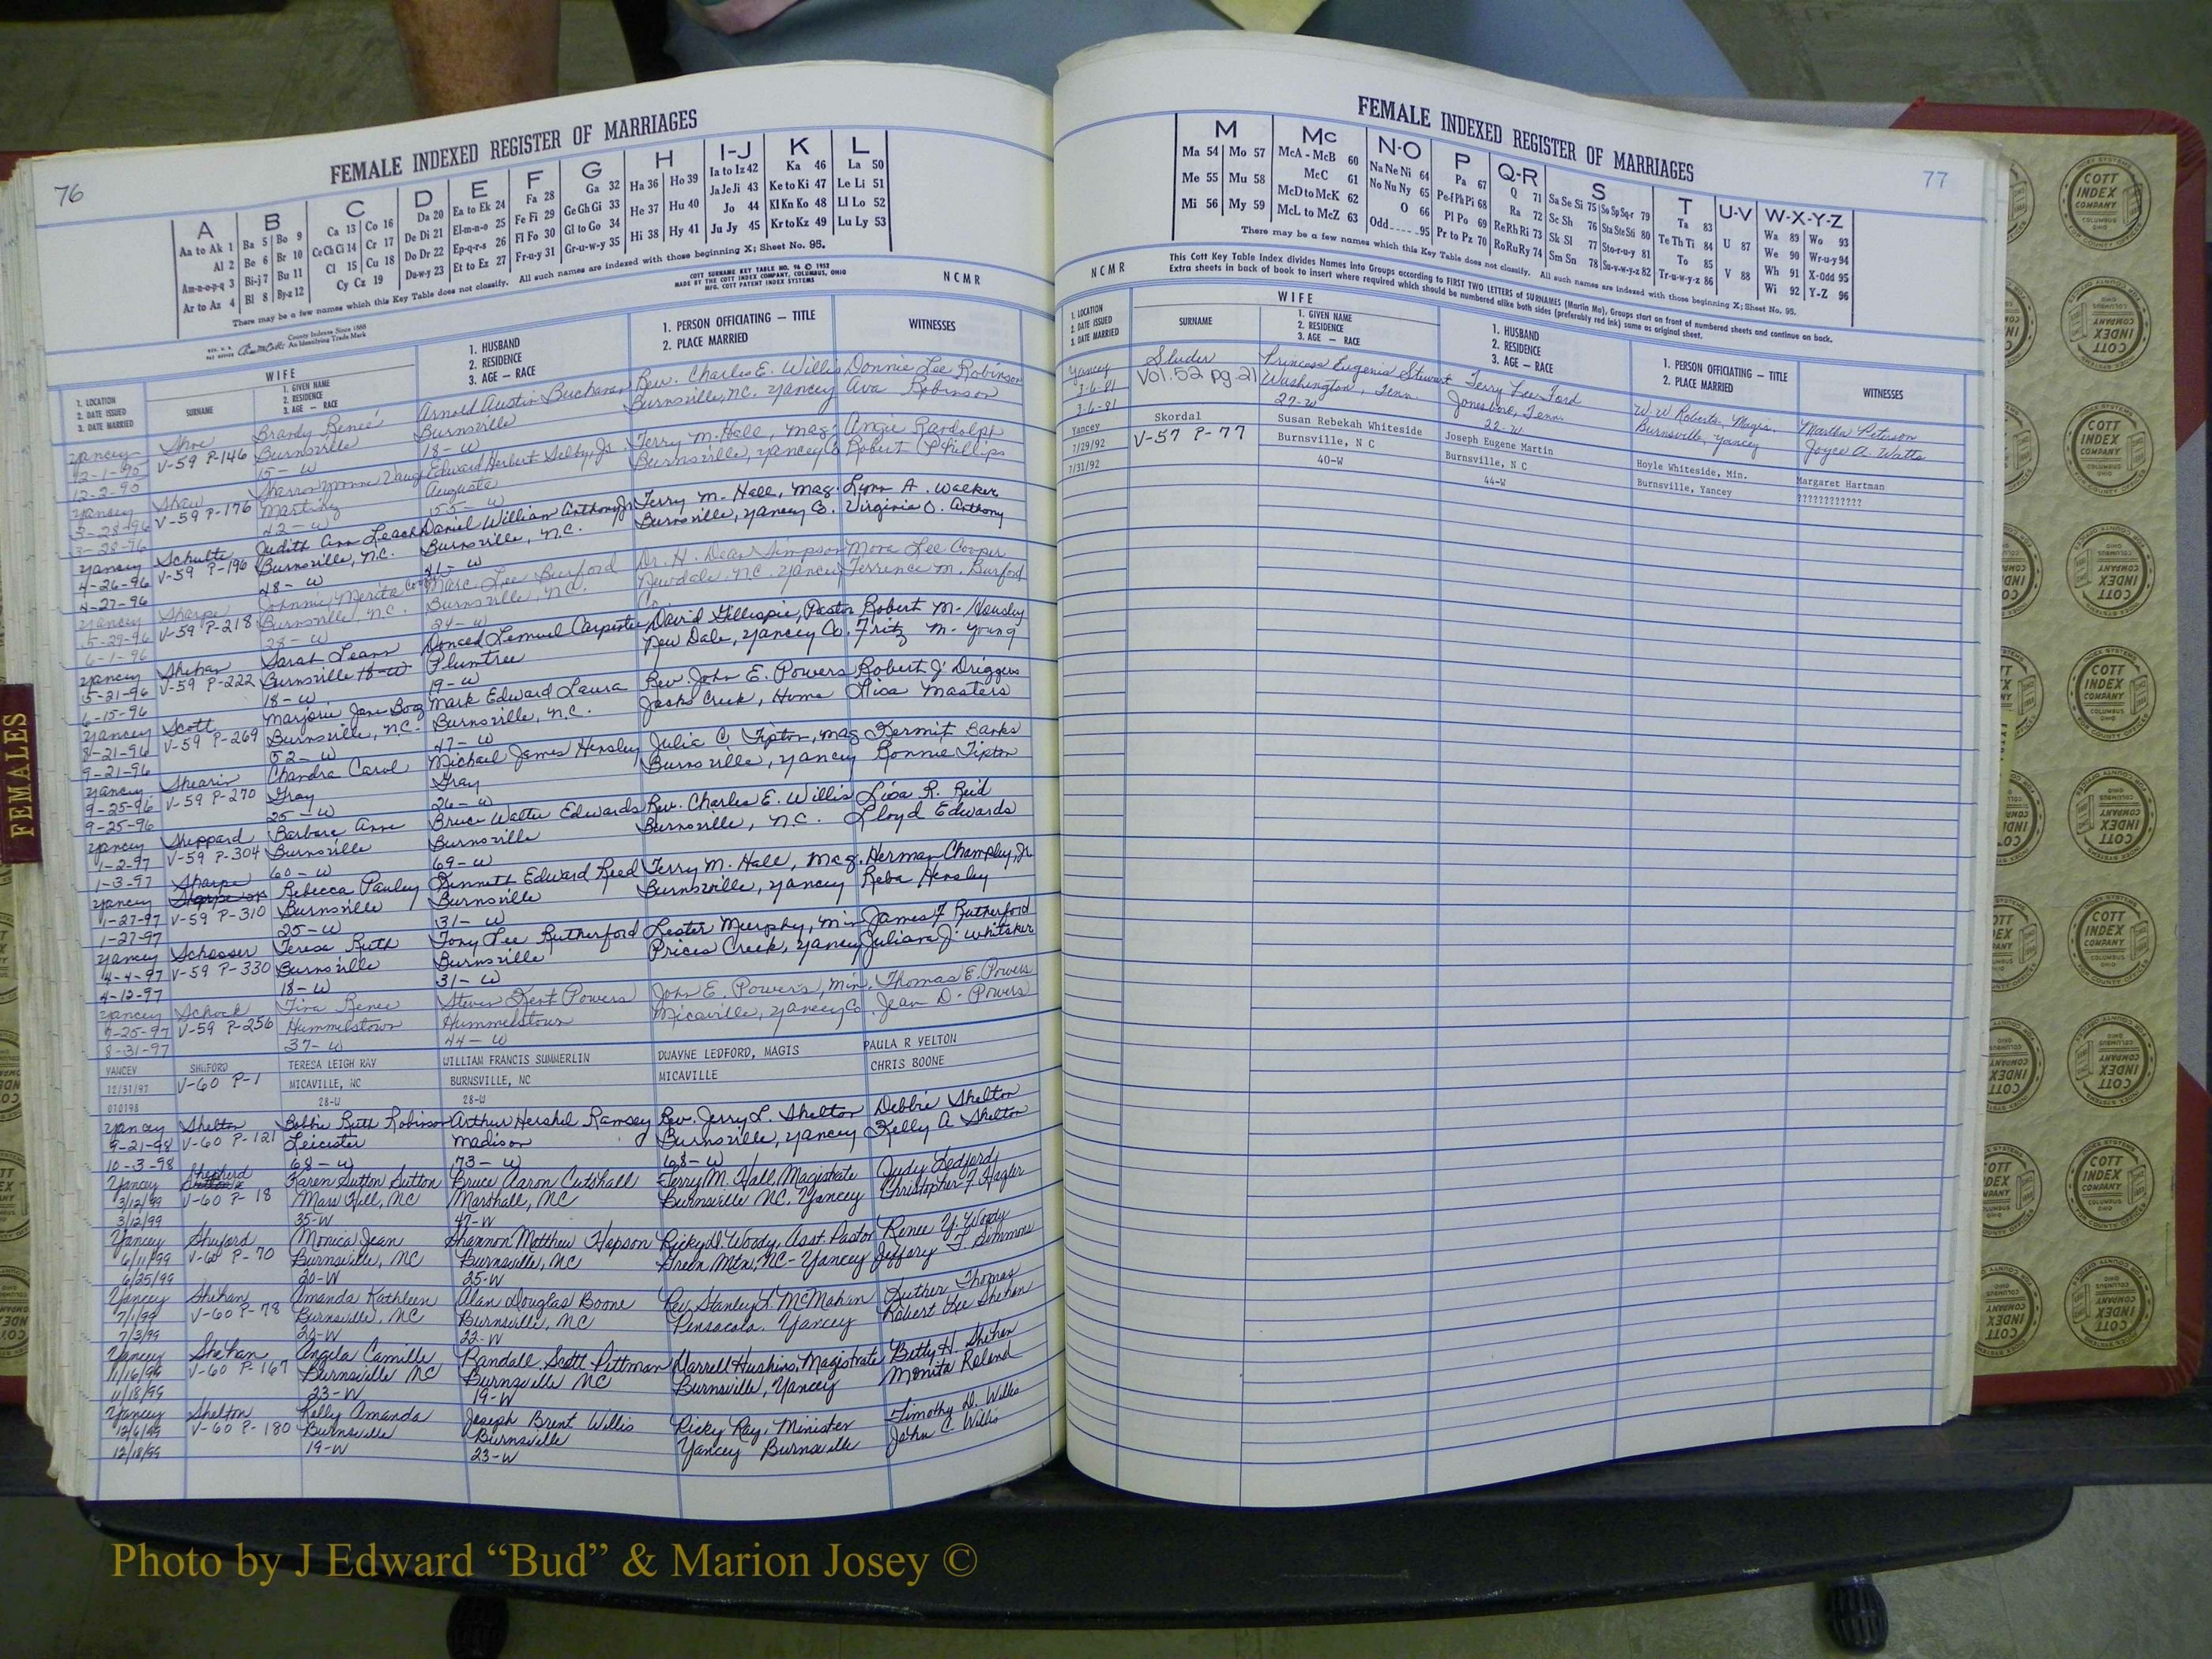 76
FEMALE INDEXED REGISTER OF MARRIAGES
A B C D E F G H I-J K L
Aa to Ak 1 Ba 5 Bo 9 Ca 13 Co 16 Da 20 Ea to Ek 24 Fa 28 Ga 32 Ha 36 Ho 39 Ia to Iz 42 Ka 46 La 50
Al 2 Be 6 Br 10 Ce Ch Ci 14 Cr 17 De Di 21 El-m-n-o 25 Fe Fi 29 Ge Gh Gi 33 He 37 Hu 40 Ja Je Ji 43 Ke to Ki 47 Le Li 51
Am-n-o-p-q 3 Bi-j 7 Bu 11 Cl 15 Cu 18 Do Dr 22 Ep-q-r-s 26 Fl Fo 30 Gl to Go 34 Hi 38 Hy 41 Jo 44 Kl Kn Ko 48 Ll Lo 52
Ar to Az 4 Bl 8 By-z 12 Cy Cz 19 Du-w-y 23 Et to Ez 27 Fr-u-y 31 Gr-u-w-y 35 Ju Jy 45 Kr to Kz 49 Lu Ly 53
There may be a few names which this Key Table does not classify. All such names are indexed with those beginning X; Sheet No. 95.
County Indexes Since 1888
An Identifying Trade Mark
COTT SURNAME KEY TABLE NO. 96 © 1952
MADE BY THE COTT INDEX COMPANY, COLUMBUS, OHIO
MFG. COTT PATENT INDEX SYSTEMS
NCMR
1. LOCATION
2. DATE ISSUED
3. DATE MARRIED
WIFE
SURNAME
1. GIVEN NAME
2. RESIDENCE
3. AGE — RACE
1. HUSBAND
2. RESIDENCE
3. AGE — RACE
1. PERSON OFFICIATING — TITLE
2. PLACE MARRIED
WITNESSES
Yancey Shoe Brandy Reneé Arnold Austin Buchanan Rev. Charles E. Willis Donnie Lee Robinson
12-1-95 V-59 P-146 Burnsville Burnsville Burnsville, NC. Yancey Ava Robinson
12-2-95 15-W 18-W
Yancey Shaw Sharron Yvonne Edward Herbert Selby, Jr. Terry M. Hall, Mag. Angie Randolph
3-28-96 V-59 P-176 Augusta Burnsville, Yancey Co Robert P Phillips
3-28-96 42-W 55-W
Yancey Schulte Judith Ann Leach Daniel William Anthony Jr Terry M. Hall, Mag. Lynn A. Walker
4-26-96 V-59 P-196 Burnsville, N.C. Burnsville, N.C. Burnsville, Yancey Co. Virginia O. Anthony
4-27-96 48-W 41-W
Yancey Sharpe Johnnie Merita Marc Lee Burford Dr. H. Dean Simpson Mona Lee Cooper
5-29-96 V-59 P-218 Burnsville, N.C. Burnsville, N.C. Newdale, NC. Yancey Terrence M. Burford
6-1-96 28-W 24-W Co.
Yancey Shehan Sarah Leann Lemuel Carpenter David Gillespie, Pastor Robert M. Housley
5-21-96 V-59 P-222 Burnsville 18-W Plumtree New Dale, Yancey Co. Fritz M. Young
6-15-96 18-W 19-W
Yancey Scott Marjorie Jane Mark Edward Laura Rev. John E. Powers Robert J. Driggers
8-21-96 V-59 P-269 Burnsville, NC. Burnsville, N.C. Jacks Creek, Home Lisa Masters
9-21-96 52-W 47-W
Yancey Shearin Chandra Carol Michael James Hensley Julia C Tipton, Mag Kermit Banks
9-25-96 V-59 P-270 Gray Gray Burnsville, Yancey Bonnie Tipton
9-25-96 25-W 26-W
Yancey Sheppard Barbara Ann Bruce Walter Edwards Rev. Charles E. Willis Lisa R. Reid
1-2-97 V-59 P-304 Burnsville Burnsville Burnsville, N.C. Lloyd Edwards
1-3-97 60-W 69-W
Yancey Sharpe Rebecca Pauley Kenneth Edward Reed Terry M. Hall, Mag. Herman Champley, Jr.
1-27-97 V-59 P-310 Burnsville Burnsville Burnsville, Yancey Reba Hensley
1-27-97 25-W 31-W
Yancey Schosser Teresa Ruth Tony Lee Rutherford Lester Murphy, Min James F Rutherford
4-4-97 V-59 P-330 Burnsville Burnsville Prices Creek, Yancey Juliana J. Whitaker
4-12-97 18-W 31-W
Yancey Schock Tina Renee Steven Kent Powers John E. Powers, Min. Thomas E. Powers
7-25-97 V-59 P-256 Hummelstown Hummelstown Micaville, Yancey Co. Jean D. Powers
8-31-97 37-W 44-W
YANCEY SHUFORD TERESA LEIGH RAY WILLIAM FRANCIS SUMMERLIN DWAYNE LEDFORD, MAGIS PAULA R YELTON
12/31/97 V-60 P-1 MICAVILLE, NC BURNSVILLE, NC MICAVILLE CHRIS BOONE
010198 28-W 28-W
Yancey Shelton Bobbie Ruth Robinson Arthur Hershel Ramsey Rev. Jerry L. Shelton Debbie Shelton
9-21-98 V-60 P-121 Leicester Madison Burnsville, Yancey Kelly A Shelton
10-3-98 68-W 73-W 68-W
Yancey Shepherd Karen Sutton Sutton Bruce Aaron Cutshall Terry M. Hall, Magistrate Judy Ledford
3/12/99 V-60 P-18 Mars Hill, NC Marshall, NC Burnsville NC. Yancey Christopher F. Hagler
3/12/99 35-W 47-W
Yancey Shuford Monica Jean Shannon Matthew Hopson Ricky D. Woody, Asst Pastor Renee Y. Woody
6/11/99 V-60 P-70 Burnsville, NC Burnsville, NC Green Mtn, NC - Yancey Jeffery T Simmons
6/25/99 20-W 25-W
Yancey Shehan Amanda Kathleen Alan Douglas Boone Rev. Stanley L. McMahan Luther Thomas
7/1/99 V-60 P-78 Burnsville, NC Burnsville, NC Pensacola, Yancey Robert Lee Shehan
7/3/99 20-W 22-W
Yancey Shehan Angela Camille Randall Scott Pittman Darrell Huskins, Magistrate Betty H. Shehan
11/16/99 V-60 P-167 Burnsville NC Burnsville NC Burnsville, Yancey Monita Roland
11/18/99 23-W 19-W
Yancey Shelton Kelly Amanda Joseph Brent Willis Ricky Ray, Minister Timothy D. Willis
12/6/99 V-60 P-180 Burnsville Burnsville Yancey Burnsville John C. Willis
12/18/99 19-W 23-W
FEMALES
77
FEMALE INDEXED REGISTER OF MARRIAGES
M Mc N-O P Q-R S T U-V W-X-Y-Z
Ma 54 Mo 57 McA - McB 60 Na Ne Ni 64 Pa 67 Q 71 Sa Se Si 75 So Sp Sq-r 79 Ta 83 Wa 89 Wo 93
Me 55 Mu 58 McC 61 No Nu Ny 65 Pe-f Ph Pi 68 Ra 72 Sc Sh 76 Sta Ste Sti 80 Te Th Ti 84 U 87 We 90 Wr-u-y 94
Mi 56 My 59 McD to McK 62 O 66 Pl Po 69 Re Rh Ri 73 Sk Sl 77 Sto-r-u-y 81 To 85 Wh 91 X-Odd 95
McL to McZ 63 Odd 95 Pr to Pz 70 Ro Ru Ry 74 Sm Sn 78 Su-v-w-y-z 82 Tr-u-w-y-z 86 V 88 Wi 92 Y-Z 96
There may be a few names which this Key Table does not classify. All such names are indexed with those beginning X; Sheet No. 95.
NCMR
This Cott Key Table Index divides Names into Groups according to FIRST TWO LETTERS of SURNAMES (Martin Ma), Groups start on front of numbered sheets and continue on back.
Extra sheets in back of book to insert where required which should be numbered alike both sides (preferably red ink) same as original sheet.
1. LOCATION
2. DATE ISSUED
3. DATE MARRIED
WIFE
SURNAME
1. GIVEN NAME
2. RESIDENCE
3. AGE — RACE
1. HUSBAND
2. RESIDENCE
3. AGE — RACE
1. PERSON OFFICIATING — TITLE
2. PLACE MARRIED
WITNESSES
Yancey Sluder Princess Eugenia Stewart Terry Lee Ford W.W. Roberts, Magis. Martha Peterson
3-6-81 Vol. 52 pg. 21 Washington, Tenn. Jonesboro, Tenn. Burnsville, Yancey Joyce A. Watts
3-6-81 27-W 22-W
Yancey Skordal Susan Rebekah Whiteside Joseph Eugene Martin Hoyle Whiteside, Min. Margaret Hartman
7/29/92 V-57 P-77 Burnsville, N C Burnsville, N C Burnsville, Yancey ????????????
7/31/92 40-W 44-W
COTT INDEX COMPANY COLUMBUS OHIO
Photo by J Edward “Bud” & Marion Josey ©